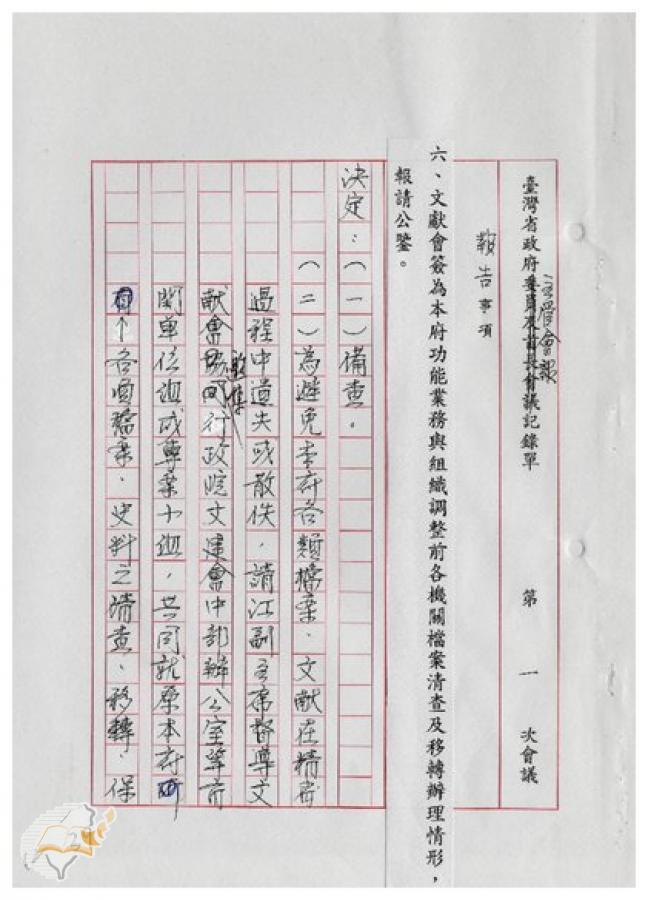 臺灣省政府主管會報議記錄單 第一次會議
報告事項
六、文獻會簽為本府功能業務與組織調整前各機關檔案清查及移轉辦理情形，
報請公鑒。
決定：（一）備查。
（二）為避免本府各類檔案、文獻在精省
過程中遺失或散佚，請江副主席督導文
獻會協同行政院文建會中部辦公室等有
關單位組成專案小組，共同就原本府所
有各項檔案、史料之清查、移轉、保